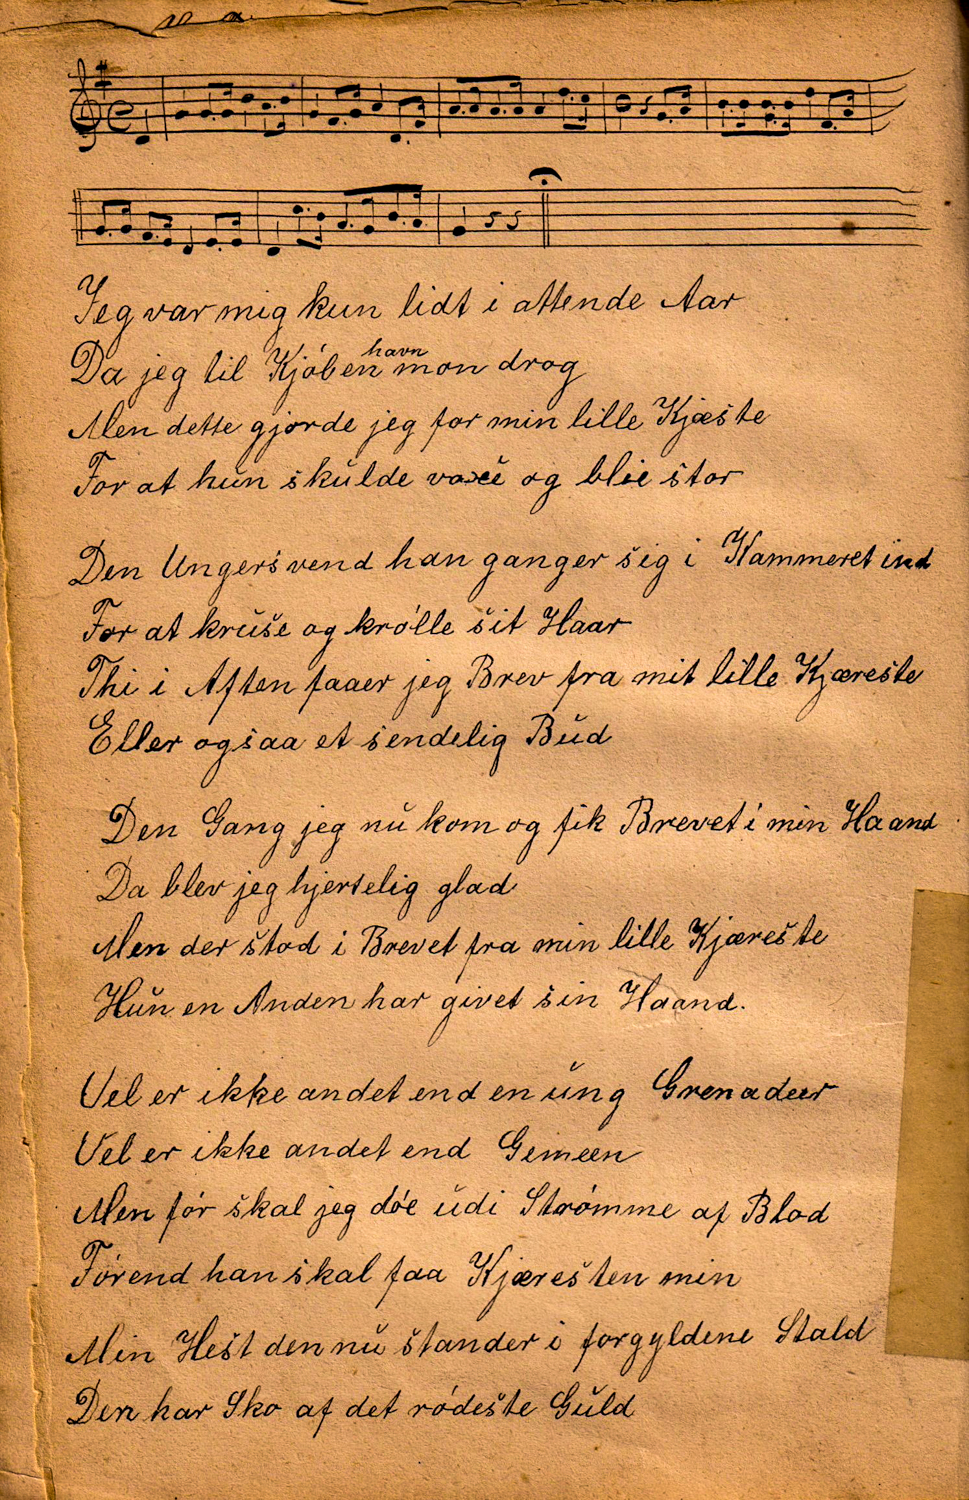 Jeg var mig kun lidt i attende Aar
Da jeg til Kjóbenhavn mon drog
Men dette gjorde jeg for min lille Kjæste
For at hun skulde voxe og blie stor
Den Ungersvend han ganger sig i Kammeret ind
For at kruse og królle sit Haar
Thi i Aften faaer jeg Brev fra mit lille Kjæreste
Eller ogsaa et sendelig Bud
Den Gang jeg nu kom og fik Brevet i min Haand
Da blev jeg hjertelig glad
Men der stod i Brevet fra min lille Kjæreste
Hun en Anden har givet sin Haand.
Vel er ikke andet end en ung Grenadeer
Vel er ikke andet end Gemeen
Men fór skal jeg dóe udi Strómme af Blod
Fórend han skal faa Kjæresten min
Min Hest den nu stander i forgyldene Stald
Den har Sko af det ródeste Guld